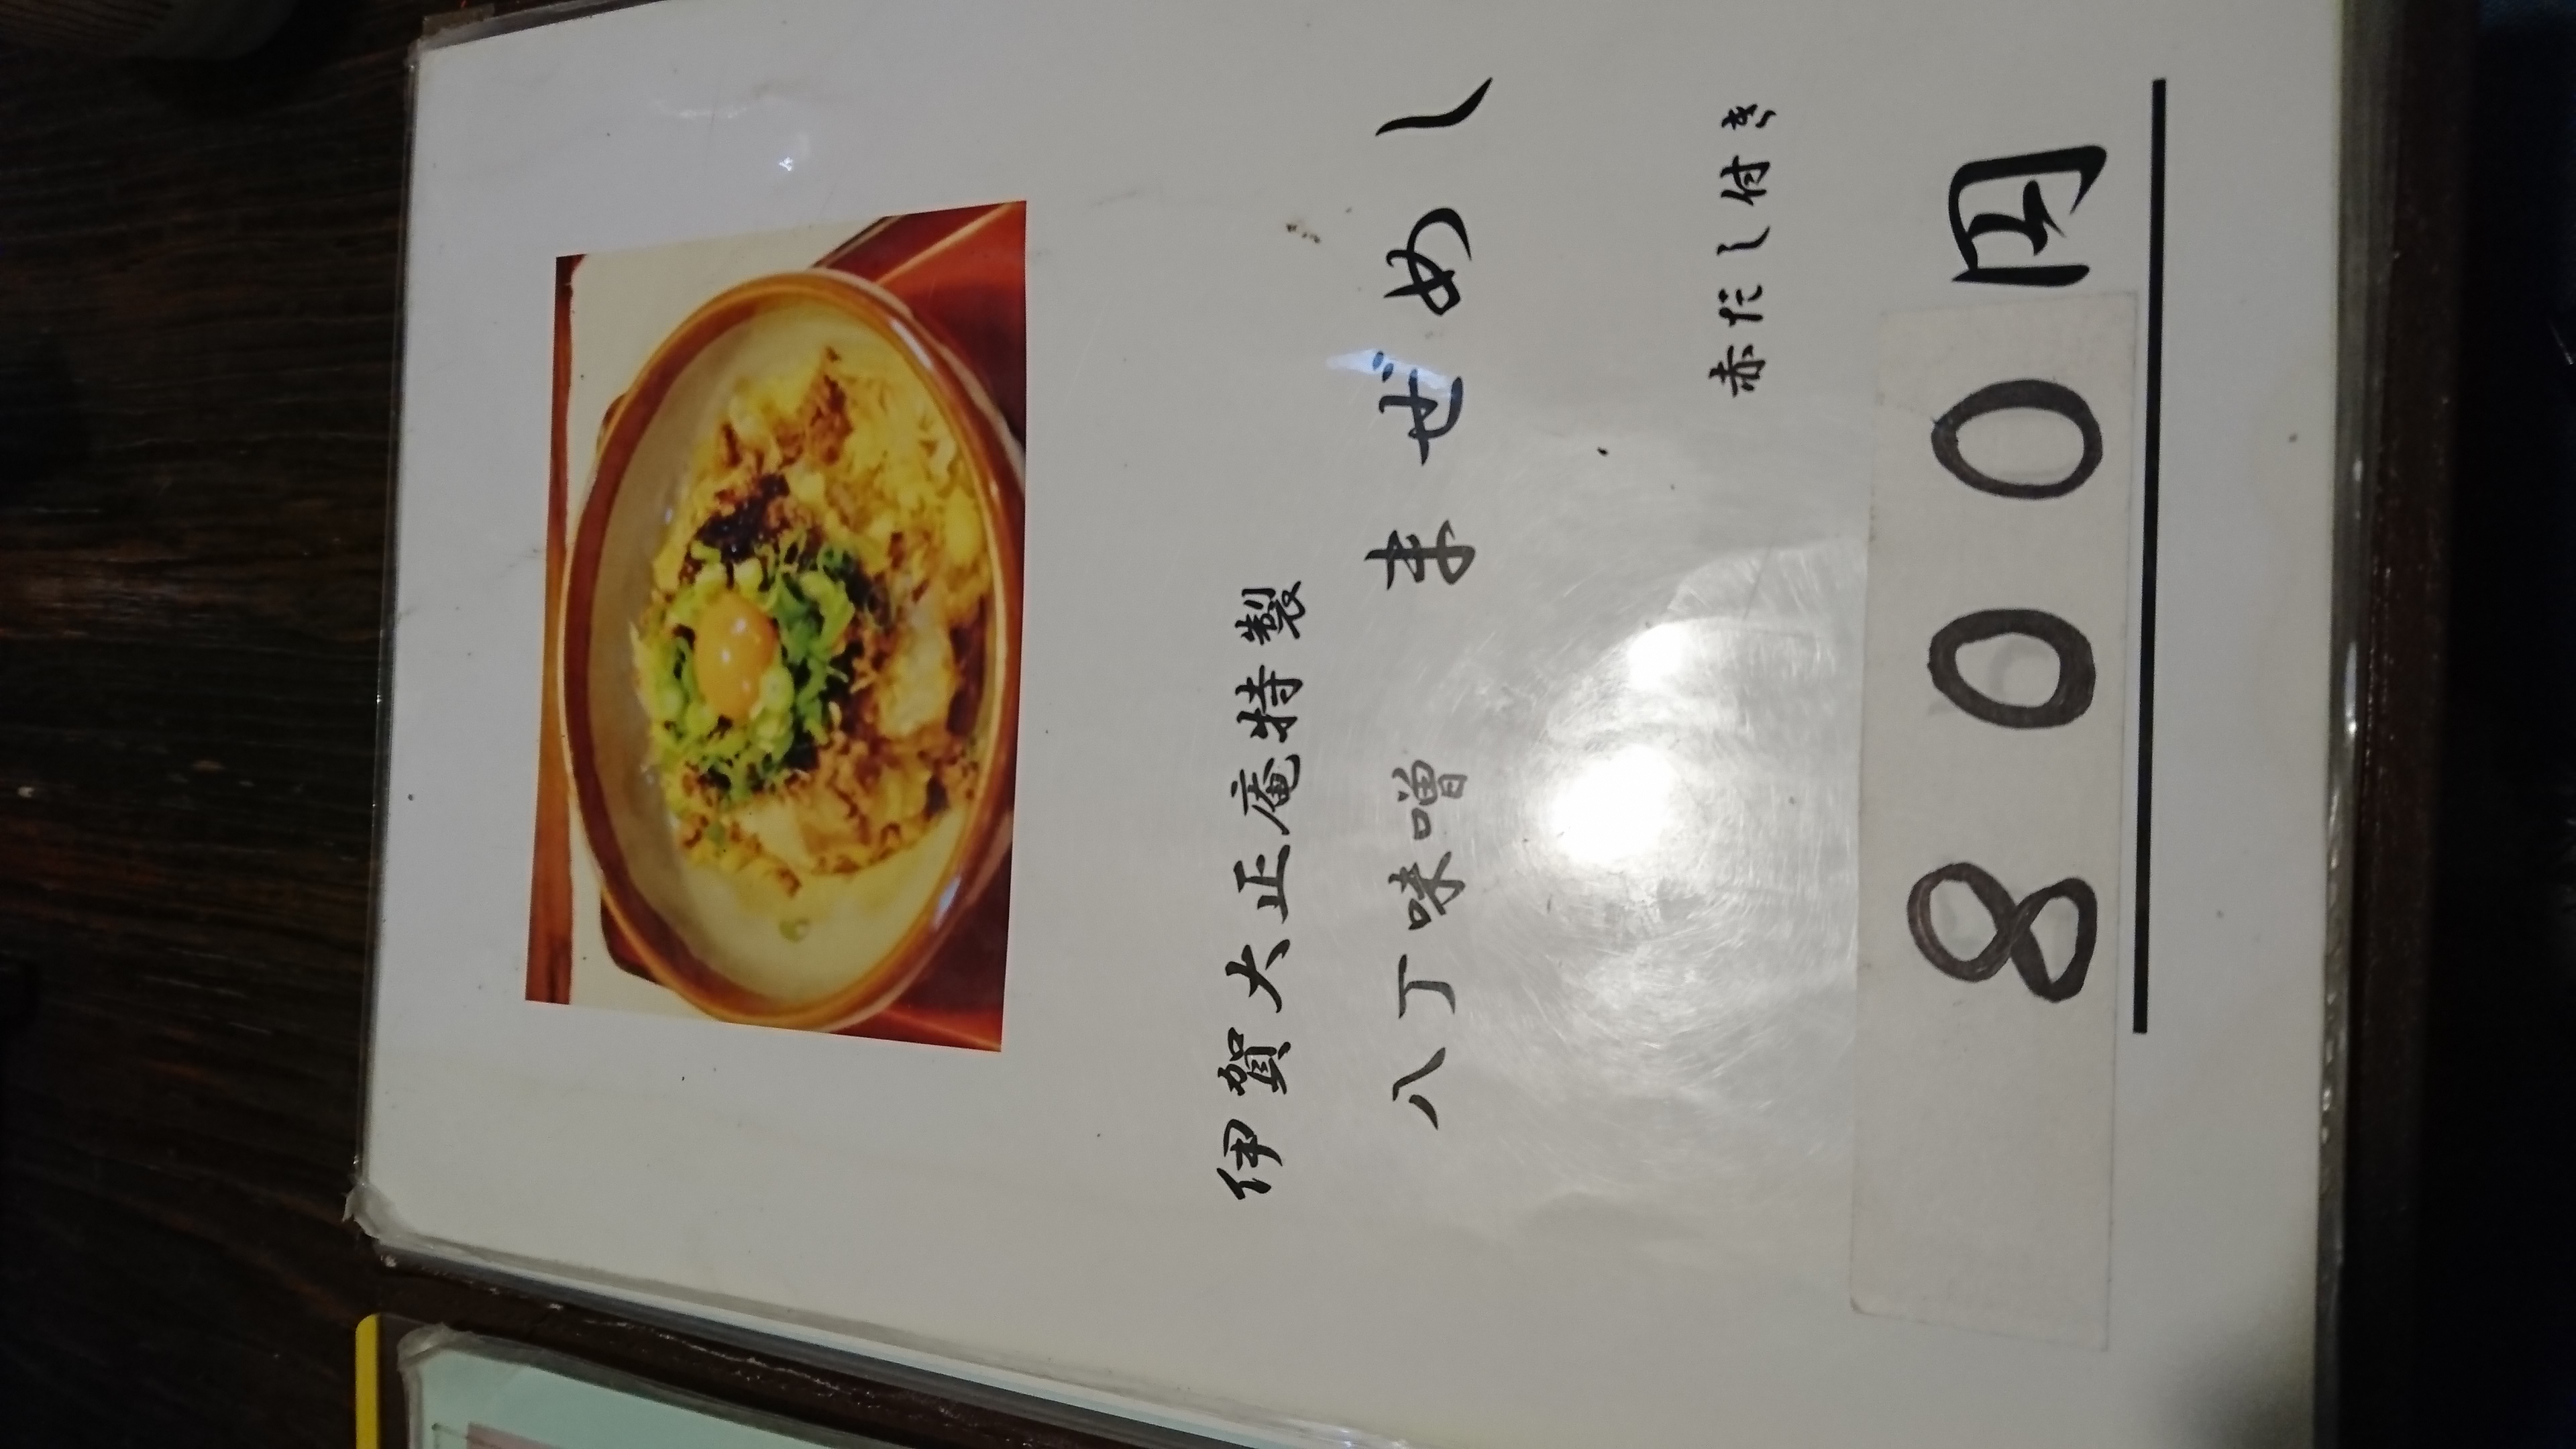 伊賀大正庵特製
八丁味噌 まぜめし
赤だし付き
800円